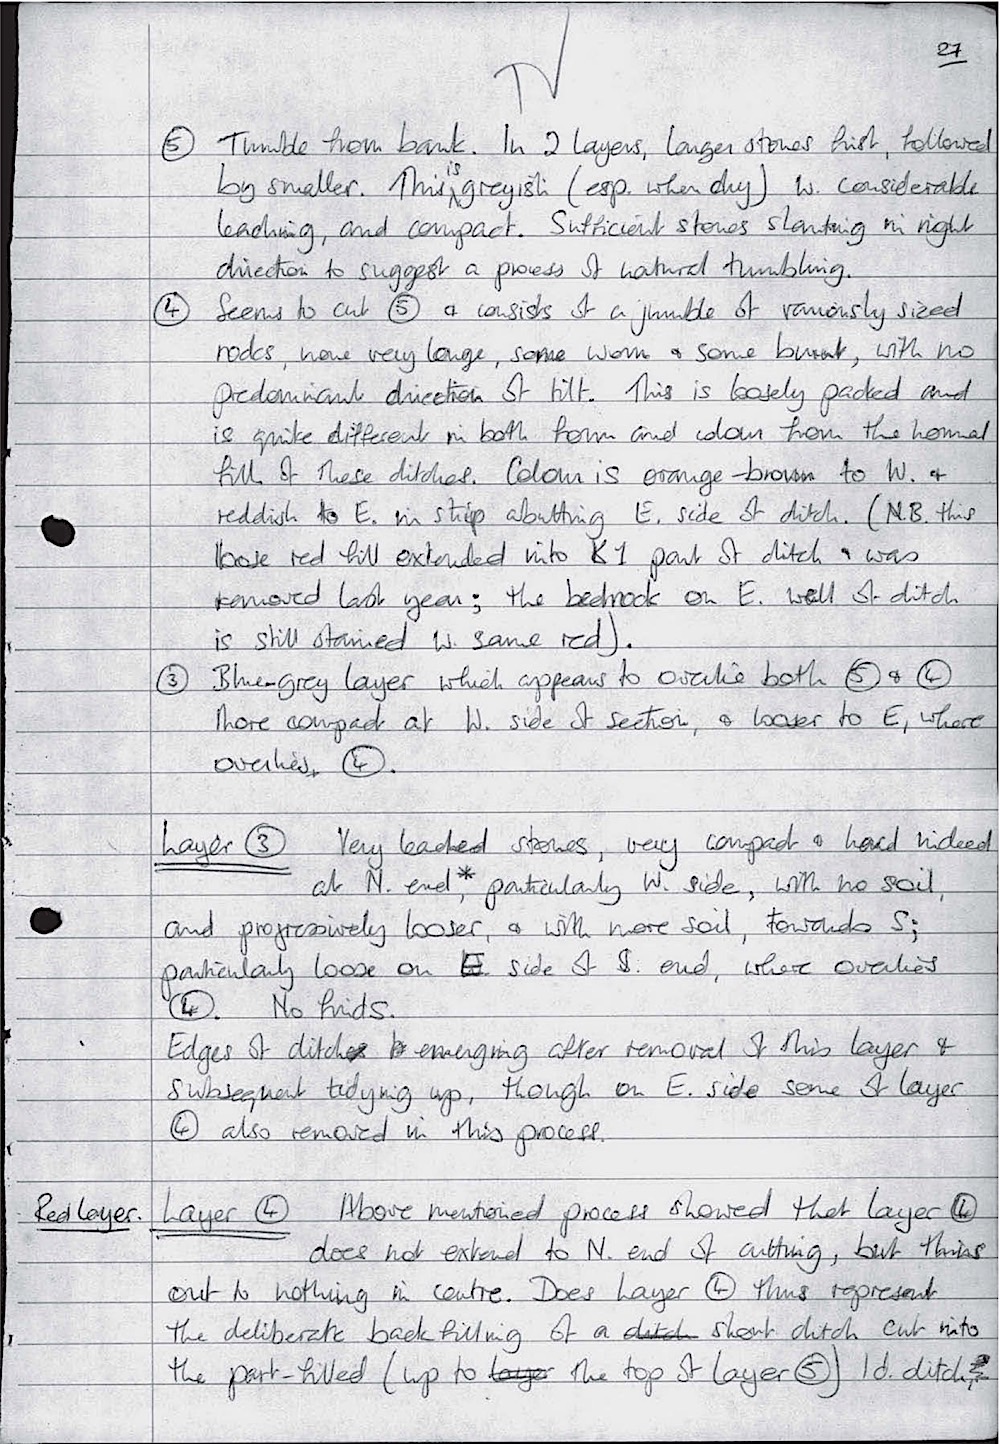 27
⑤ Tumble from bank. In 2 layers, larger stones first, followed
by smaller. This is greyish (esp. when dry) w. considerable
leaching, and compact. Sufficient stones slanting in right
direction to suggest a process of natural tumbling.
④ Seems to cut ⑤ & consists of a jumble of variously sized
rocks, none very large, some worn & some burnt, with no
predominant direction of tilt. This is loosely packed and
is quite different in both form and colour from the normal
fill of these ditches. Colour is orange-brown to W. &
reddish to E. in strip abutting E. side of ditch. (N.B. this
loose red fill extended into K1 part of ditch & was
removed last year; the bedrock on E. wall of ditch
is still stained w. same red).
③ Blue-grey layer which appears to overlie both ⑤ & ④
More compact at W. side of section, & looser to E, where
overlies ④.
Layer ③ Very leached stones, very compact & hard indeed
at N. end*, particularly W. side, with no soil,
and progressively looser, & with more soil, towards S;
particularly loose on E side of S. end, where overlies
④. No finds.
Edges of ditch emerging after removal of this layer &
subsequent tidying up, though on E. side some of layer
④ also removed in this process.
Red layer. Layer ④ Above mentioned process showed that layer ④
does not extend to N. end of cutting, but thins
out to nothing in centre. Does Layer ④ thus represent
the deliberate backfilling of a ditch short ditch cut into
the part-filled (up to layer the top of layer ⑤) I.d. ditch?